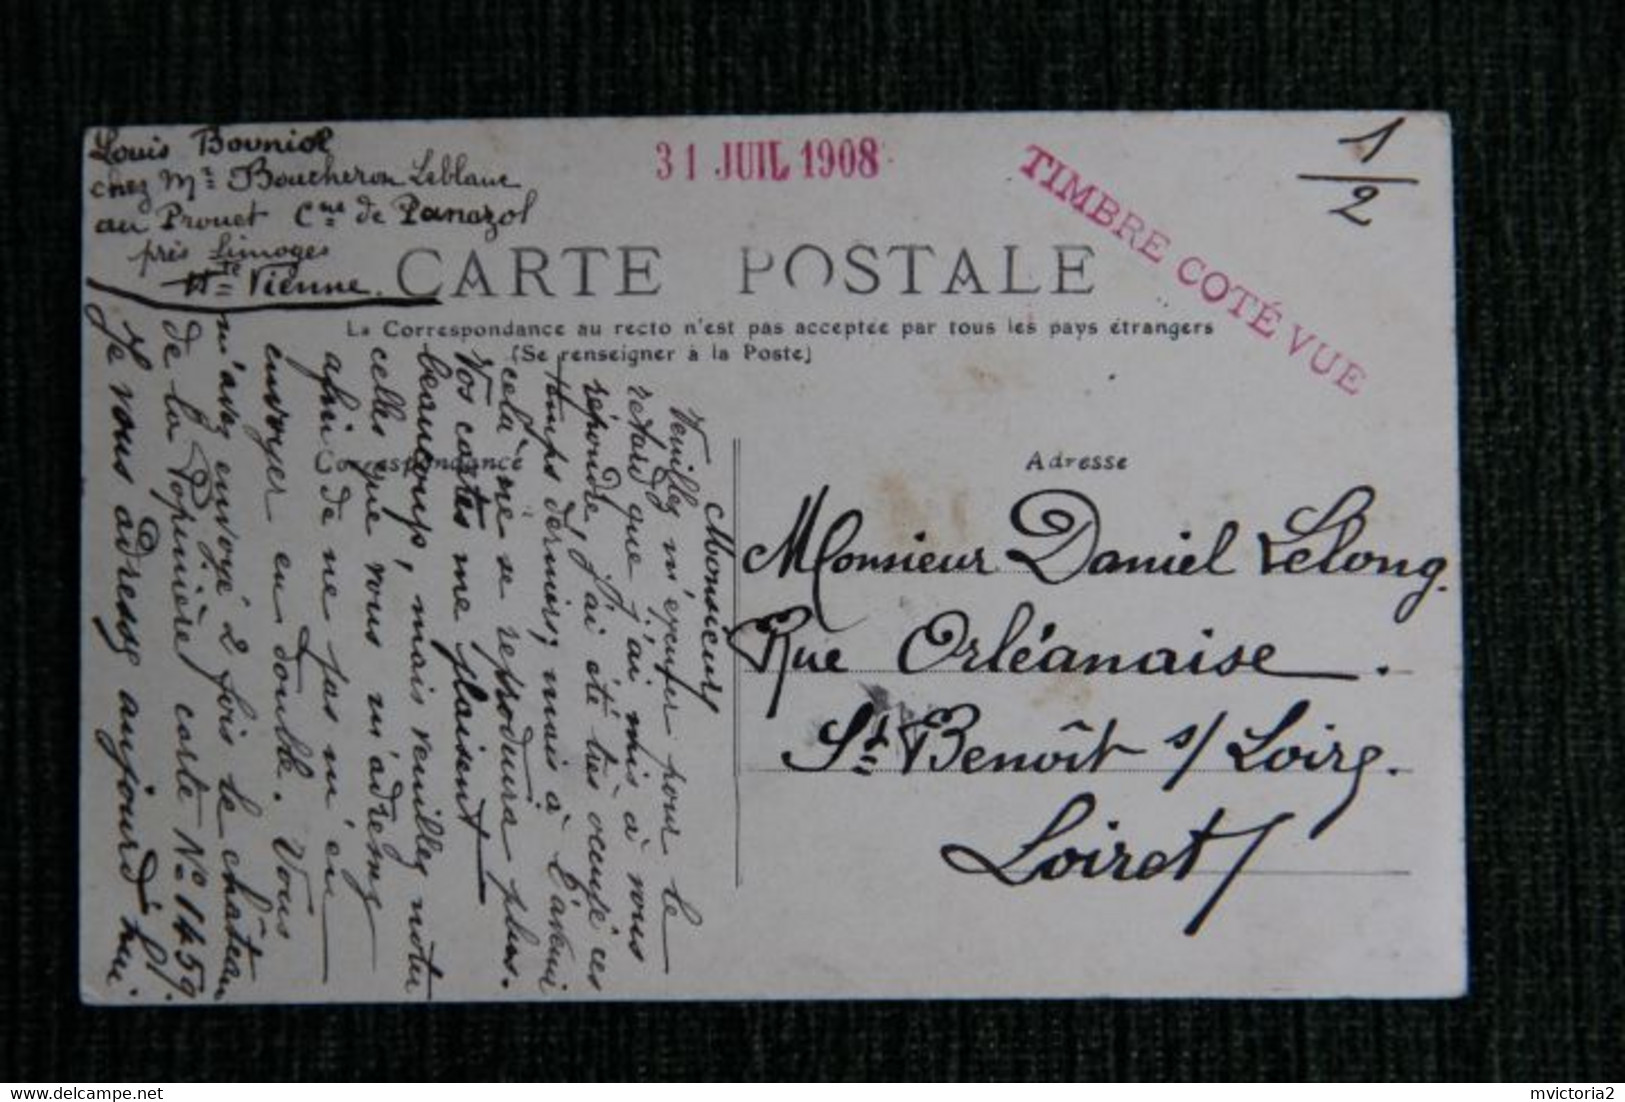 Louis Bouniol
chez Mr Boucheron Leblanc
au Prouet Cne de Panazol
près Limoges
Hte Vienne.
31 JUIL 1908
TIMBRE COTÉ VUE
1/2
CARTE POSTALE
La Correspondance au recto n'est pas acceptée par tous les pays étrangers
(Se renseigner à la Poste)
Correspondance
Adresse
Monsieur
Veuillez m'excuser pour le
retard que j'ai mis à vous
répondre, j'ai été très occupé ces
temps derniers, mais à l'avenir
cela ne se reproduira plus.
Vos cartes me plaisent
beaucoup, mais veuillez noter
celles que vous m'adressez
afin de ne pas m'en
envoyer en double. Vous
m'avez envoyé 2 fois le château
de la Popinière carte No 1459.
Je vous adresse aujourd'hui
Monsieur Daniel Lelong.
Rue Orléanaise.
St Benoît s/ Loire.
Loiret
mvictoria2